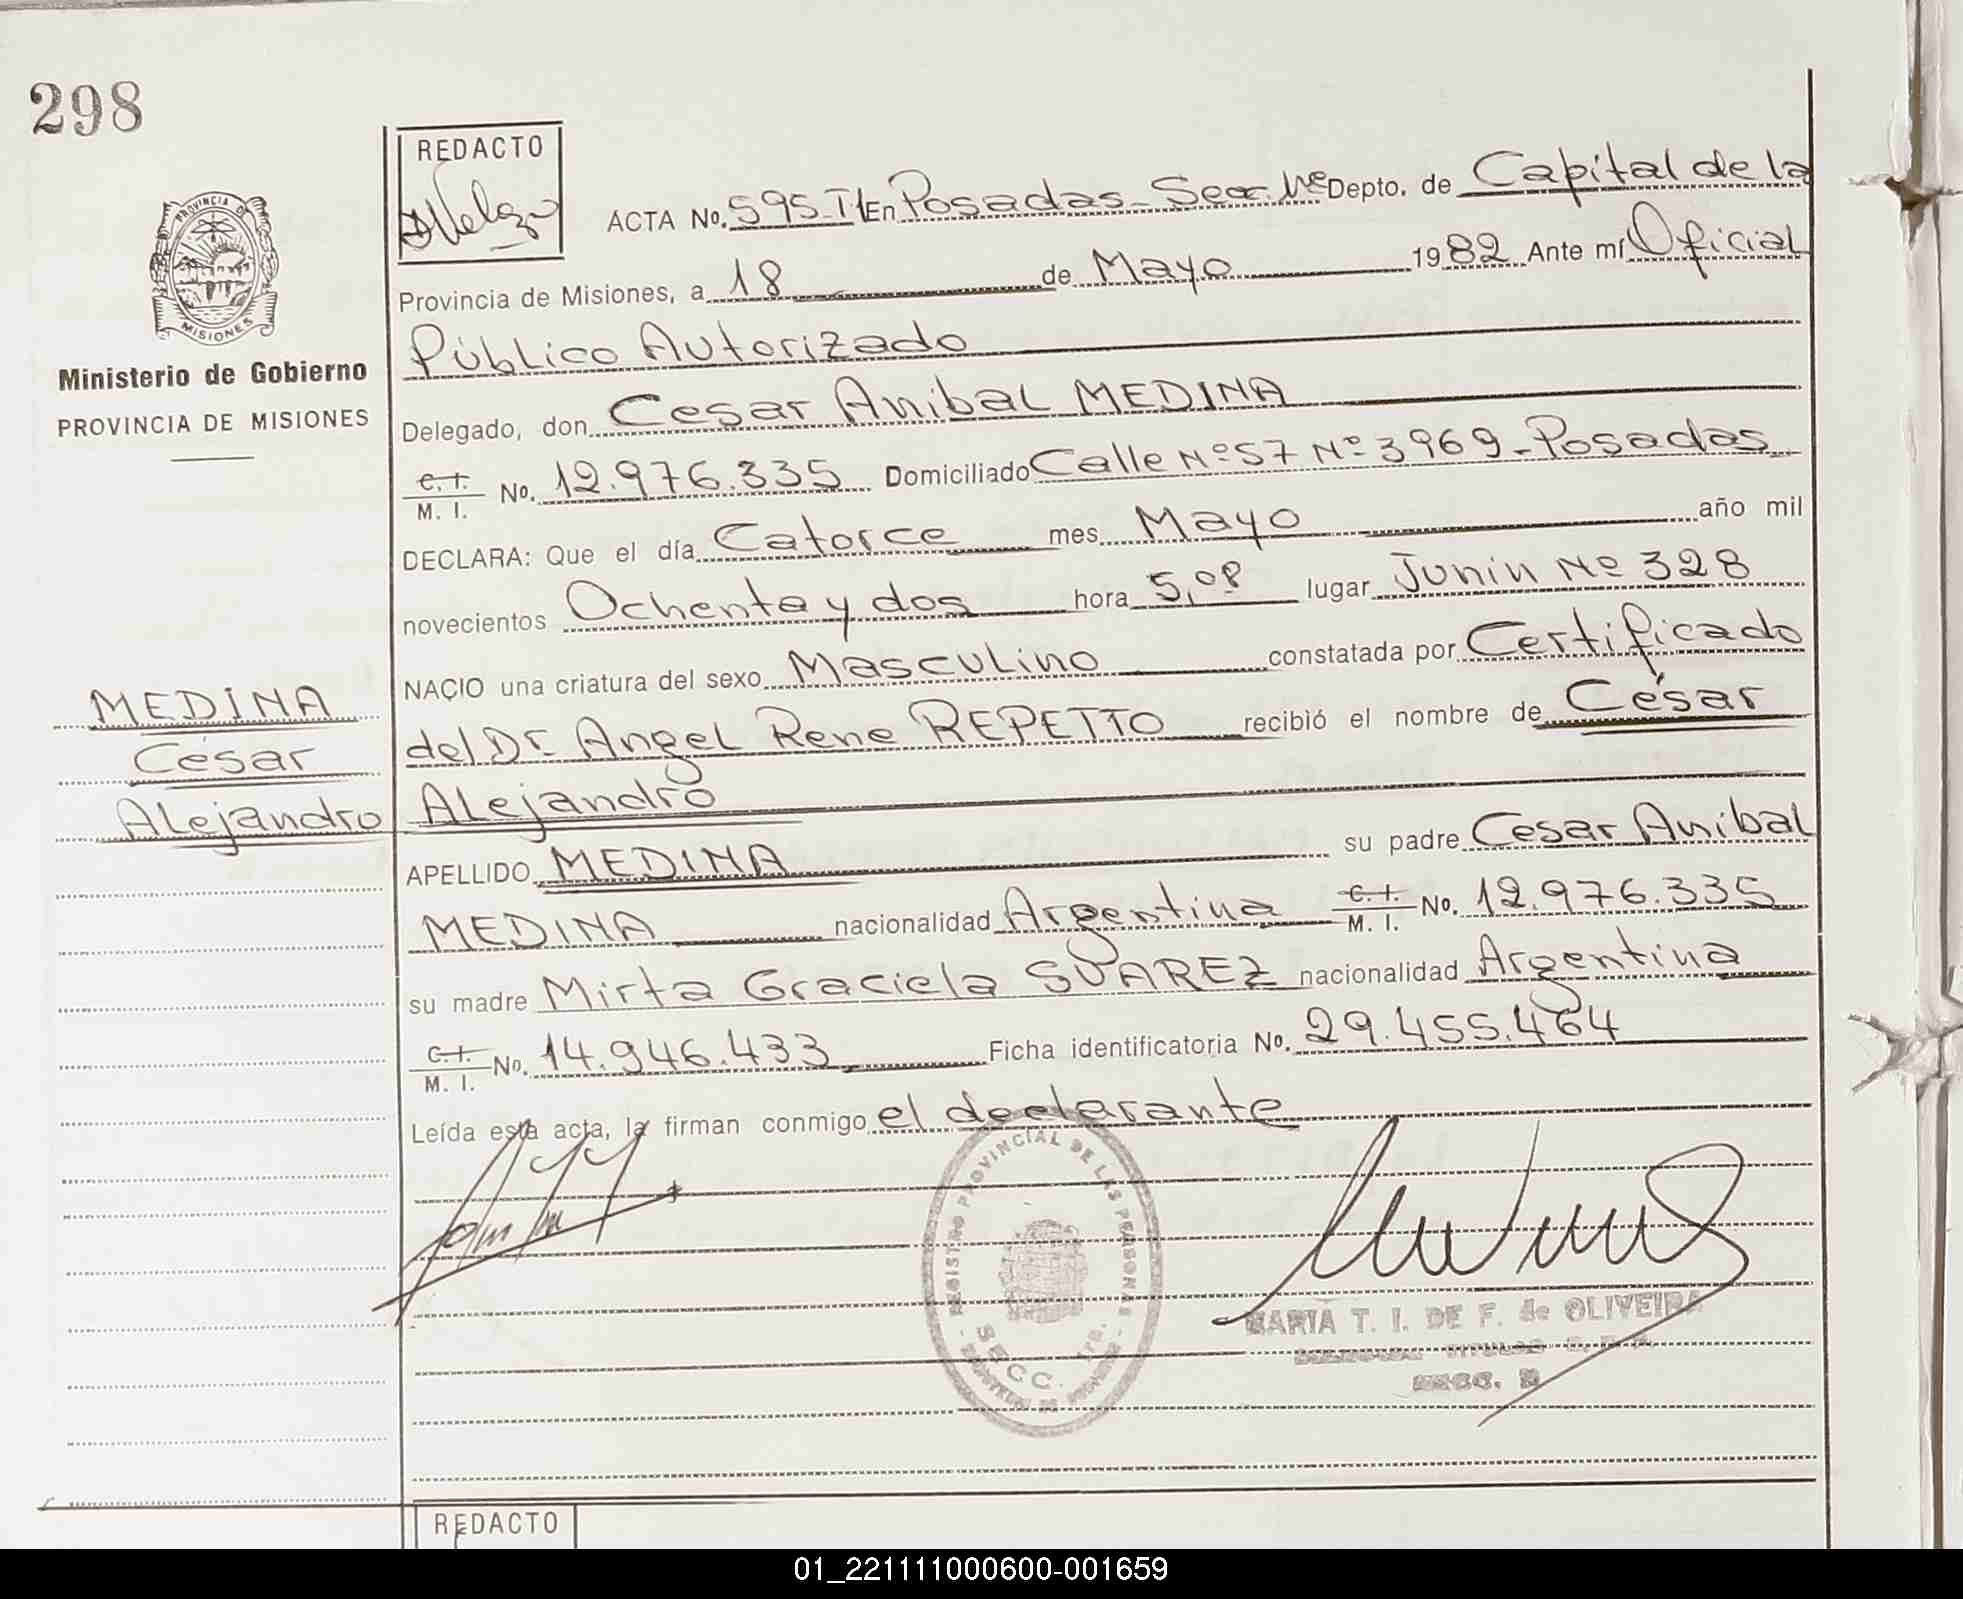 298
REDACTO
PROVINCIA DE
MISIONES
Ministerio de Gobierno
PROVINCIA DE MISIONES
ACTA No. 595-T I En Posadas - Secc. Depto. de Capital de la
Provincia de Misiones, a 18 de Mayo 1982 Ante mí Oficial
Público Autorizado
Delegado, don Cesar Anibal MEDINA
C. I. M. I. No. 12.976.335 Domiciliado Calle Nº 57 Nº 3969 - Posadas
DECLARA: Que el día Catorce mes Mayo año mil
novecientos Ochenta y dos hora 5,08 lugar Junin Nº 328
NACIO una criatura del sexo Masculino constatada por Certificado
del Dr. Angel Rene REPETTO recibió el nombre de César
Alejandro
APELLIDO MEDINA su padre Cesar Anibal
MEDINA nacionalidad Argentina C. I. M. I. No. 12.976.335
su madre Mirta Graciela SUAREZ nacionalidad Argentina
C. I. M. I. No. 14.946.433 Ficha identificatoria No. 29.455.464
Leída esta acta, la firman conmigo el declarante
MEDINA
César
Alejandro
REGISTRO PROVINCIAL DE LAS PERSONAS
SECC.
MARIA T. I. DE F. de OLIVEIRA
SECC.
REDACTO
01_221111000600-001659